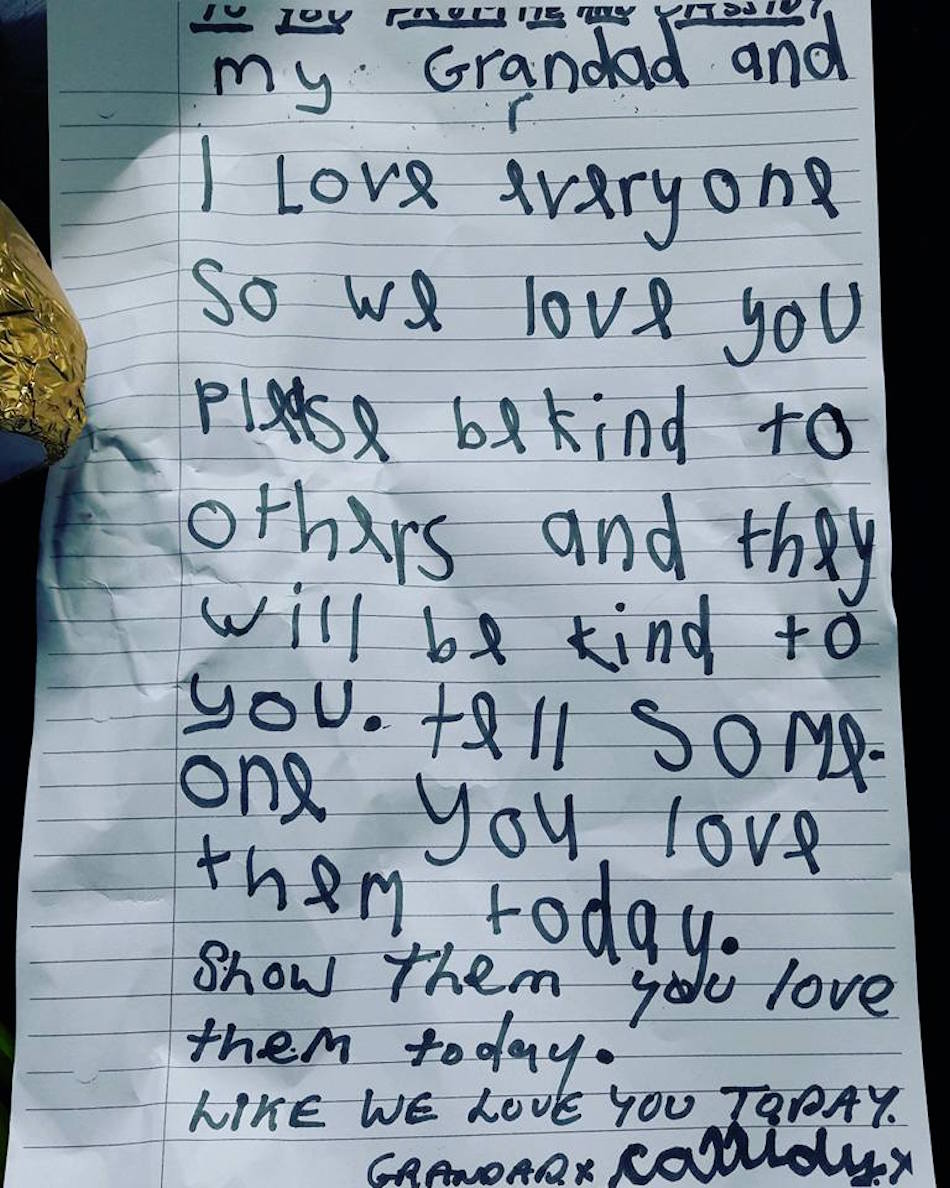 TO YOU FROM ME AND CASSIDY
My Grandad and
I Love everyone
So we love you
Please be kind to
others and they
will be kind to
you. tell some-
one you love
them today.
Show them you love
them today.
LIKE WE LOVE YOU TODAY.
GRANDAD x cassidy. x